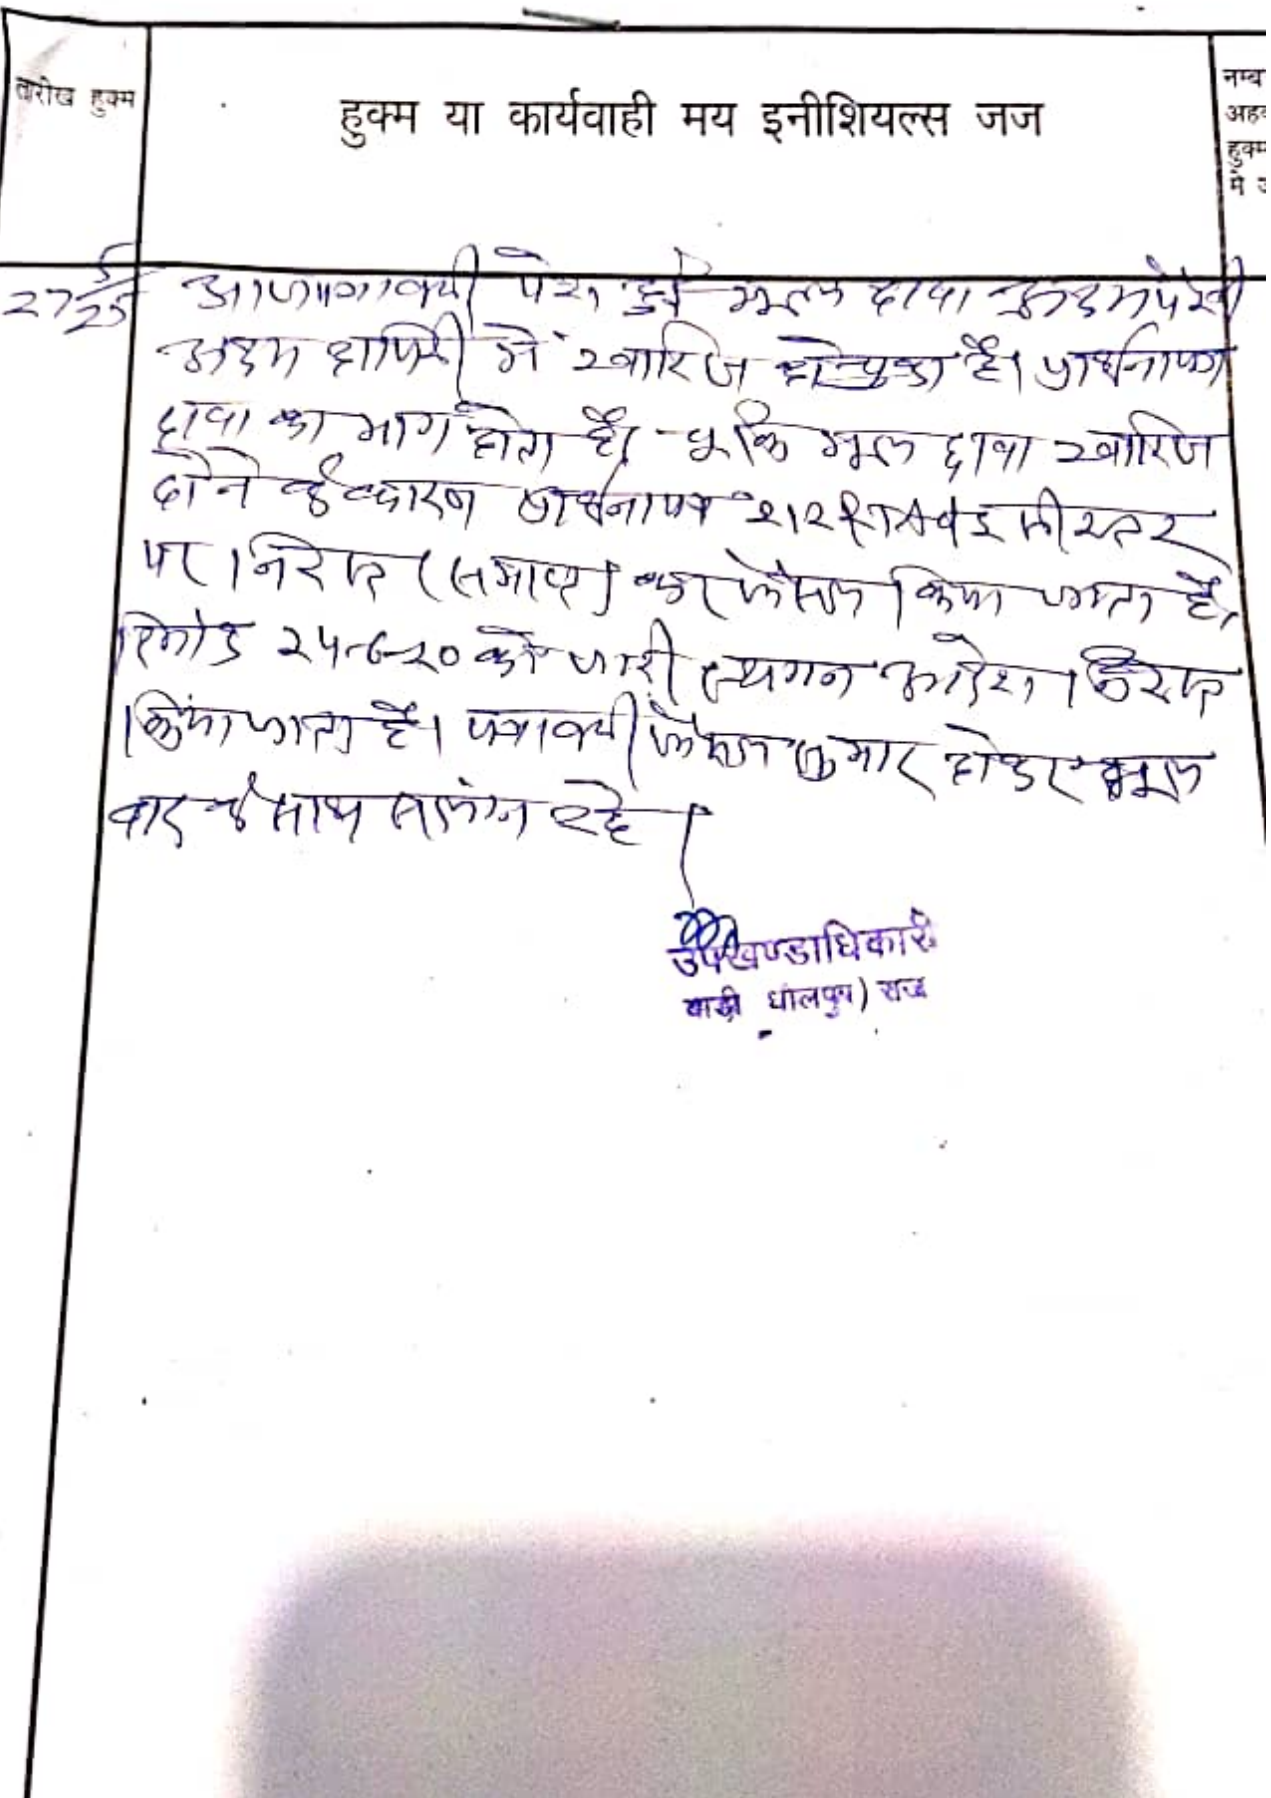 तारीख हुक्म
हुक्म या कार्यवाही मय इनीशियल्स जज
नम्ब
अहव
हुक्म
में ज
27/5/25 आज पत्रावली पेश हुई मूल दावा अदम पैरवी
अदम हाजिरी में खारिज हो चुका है। प्रार्थनापत्र
दावा का भाग होता है। चूंकि मूल दावा खारिज
होने के कारण प्रार्थनापत्र इसी स्तर
पर निरस्त (समाप्त) कर फैसल किया जाता है,
24-6-20 को जारी स्थगन आदेश निरस्त
किया जाता है। पत्रावली फैसल शुमार होकर मूल
वाद के साथ संलग्न रहे।
उपखण्डाधिकारी
बाड़ी धौलपुर) राज